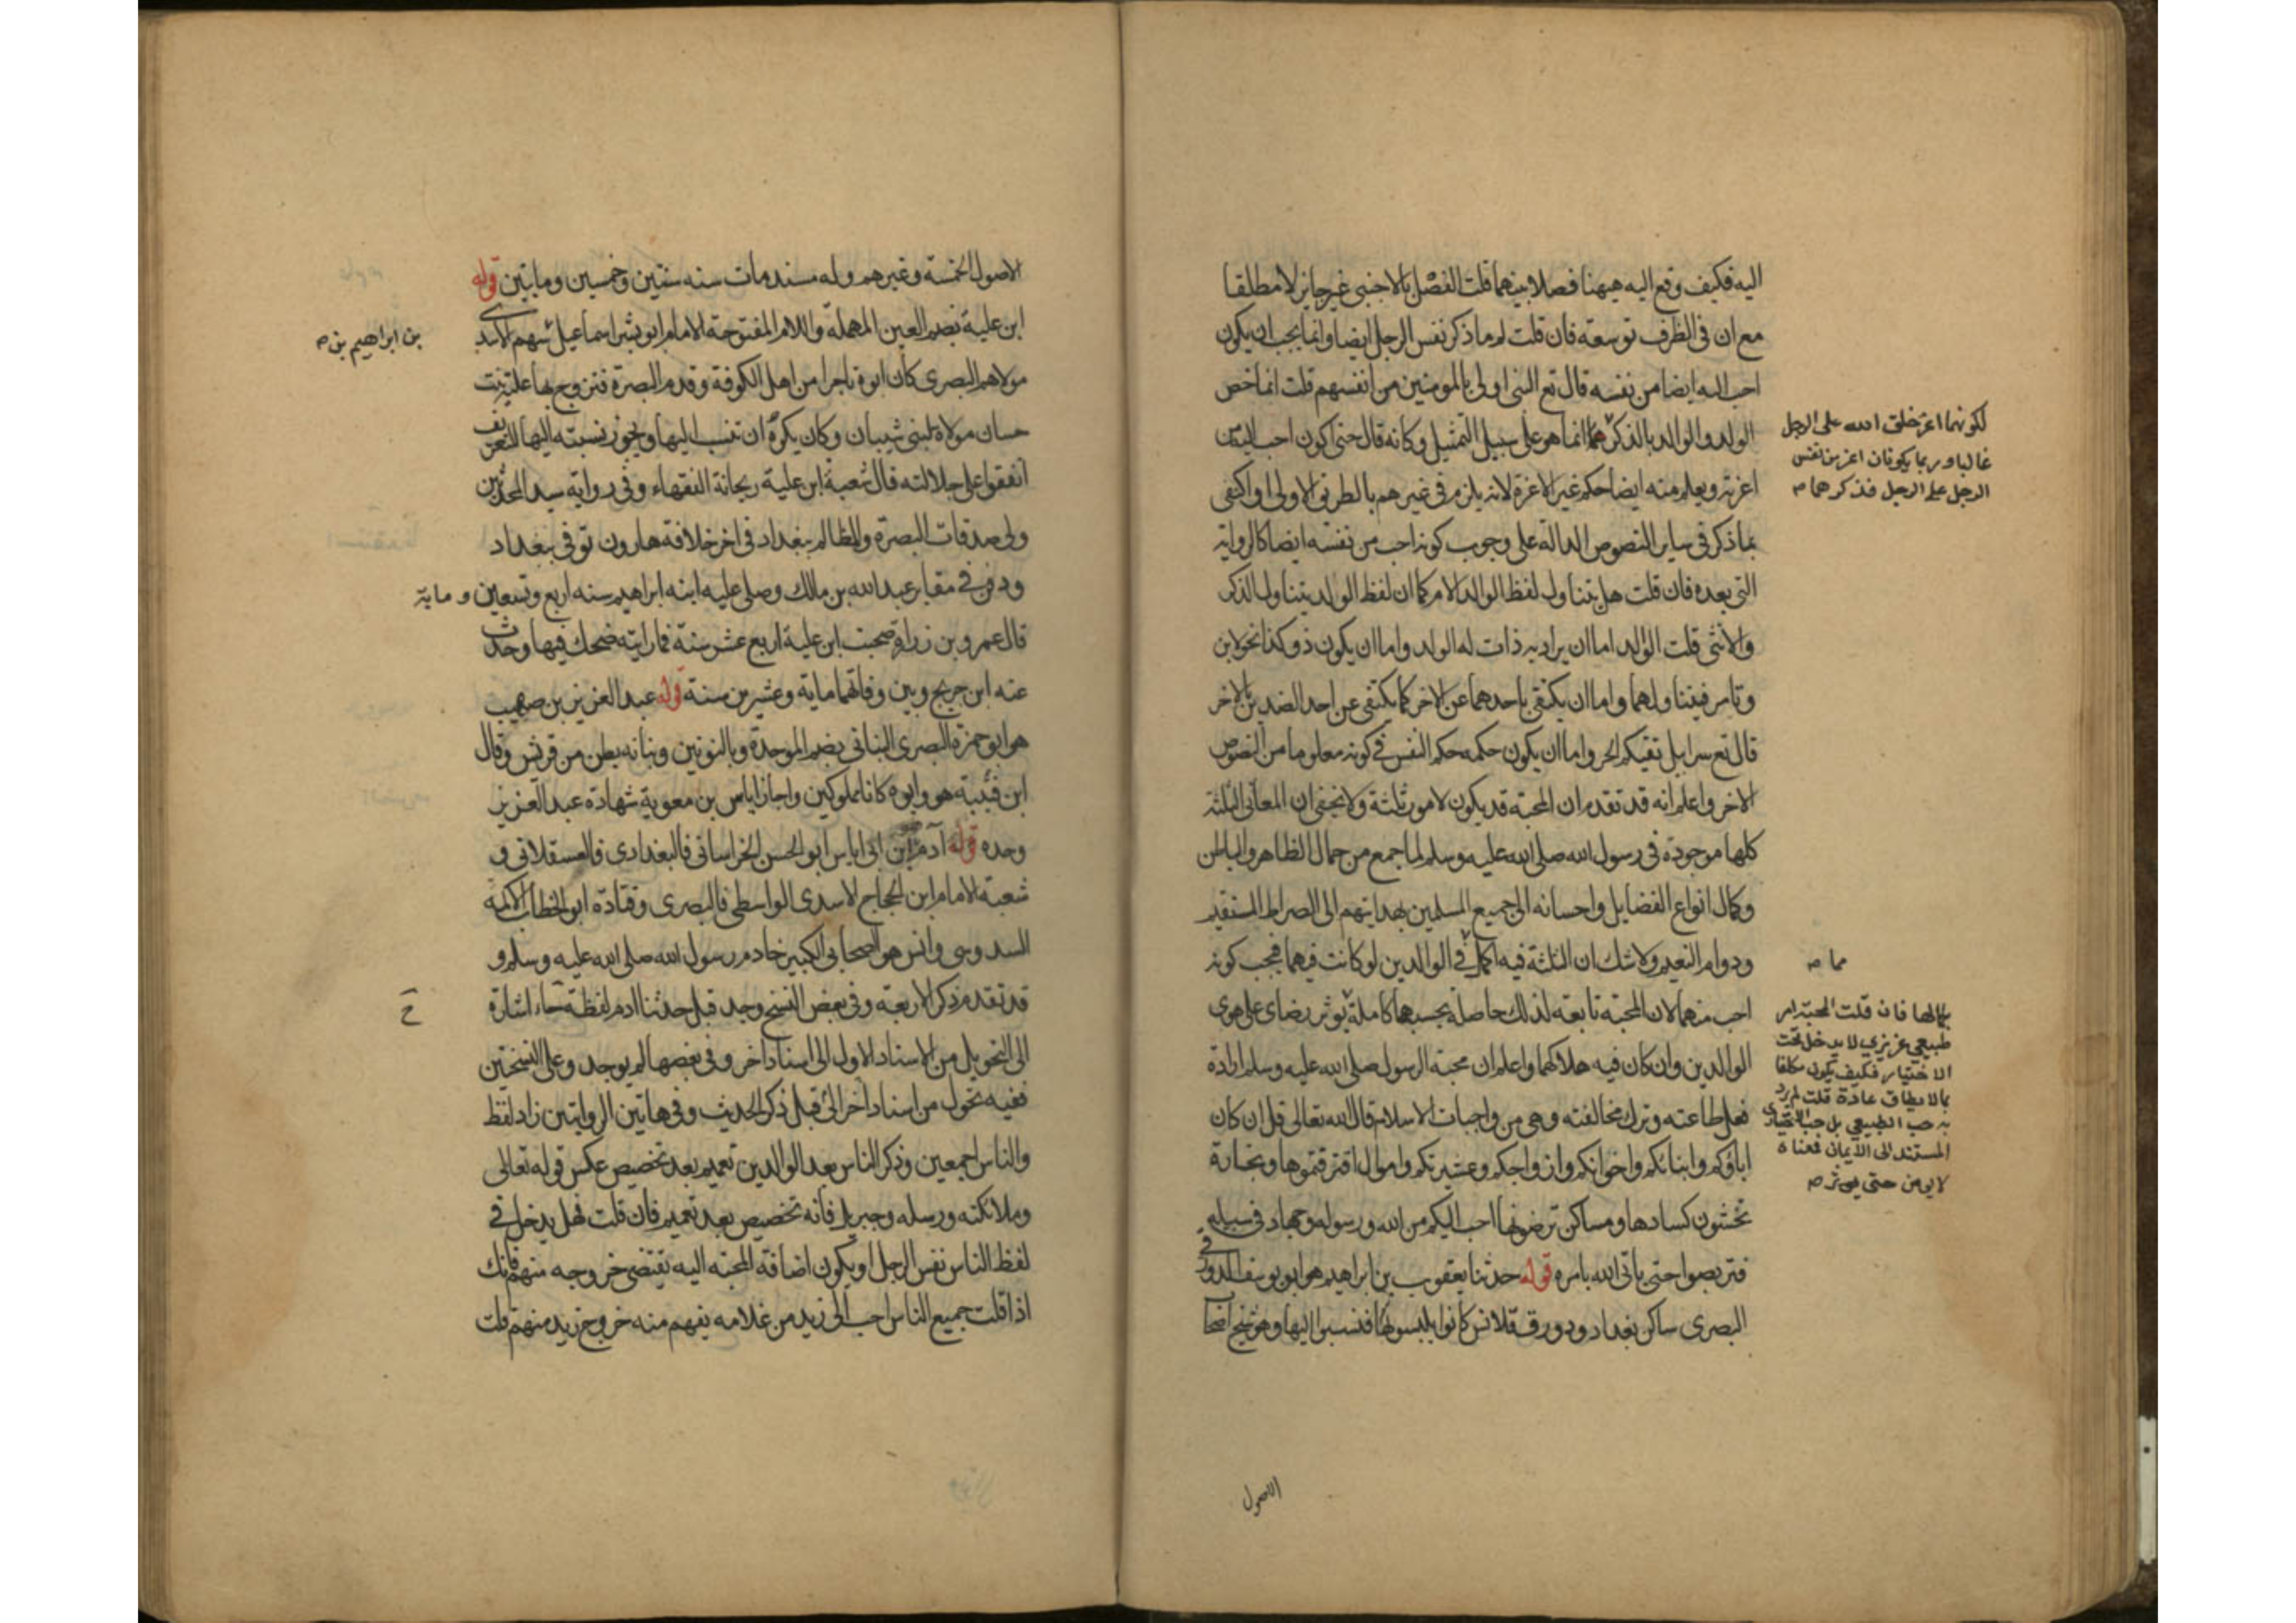 اليه فكيف وقع اليه ههنا فصلا بينهما قلت الفصل بالاجنبي غير جايز لا مطلقا
مع ان في الظرف توسعة فان قلت لم ما ذكر نفس الرجل ايضا وانما يجب ان يكون
احب اليه ايضا من نفسه قال تع النبي اولى بالمومنين من انفسهم قلت انما خص
الولد والوالد بالذكر انما هو على سبيل التمثيل وكانه قال حتى اكون احب اليه من
اعزته ويعلم منه ايضا حكم غير الاعزة لانه يلزم في غيرهم بالطريق الاولى او اكتفى
بما ذكر في ساير النصوص الدالة على وجوب كونه احب من نفسه ايضا كالرواية
التي بعده فان قلت هل يتناول لفظ الوالد الام كما ان لفظ الولد يتناول الذكر
والانثى قلت الوالد اما ان يراد به ذات له الولد واما ان يكون ذو كذا نحو لابن
وتامر فيتناولهما واما ان يكتفي باحدهما عن الاخر كما يكتفى عن احد الضدين بالاخر
قال تع سرابيل تقيكم الحر واما ان يكون حكمه حكم النفس في كونه معلوما من النصوص
الاخر واعلم انه قد تقدم ان المحبة قد يكون لامور ثلثة ولا يخفى ان المعاني الثلثة
كلها موجودة في رسول الله صلى الله عليه وسلم لما جمع من جمال الظاهر والباطن
وكمال انواع الفضايل واحسانه الى جميع المسلمين بهدايتهم الى الصراط المستقيم
ودوام النعيم ولا شك ان الثلثة فيه اكمل في الوالدين لو كانت فيهما فيجب كونه
احب منهما لان المحبة تابعة لذلك حاصلة بحسبها كاملة يوثر رضاي على هوى
الوالدين وان كان فيه هلاكهما واعلم ان محبة الرسول صلى الله عليه وسلم ارادة
فعل طاعته وترك مخالفته وهي من واجبات الاسلام قال الله تعالى قل ان كان
اباؤكم وابنائكم واخوانكم وازواجكم وعشيرتكم واموال اقترفتموها وتجارة
تخشون كسادها ومساكن ترضونها احب اليكم من الله ورسوله وجهاد في سبيله
فتربصوا حتى ياتي الله بامره قوله حدثنا يعقوب بن ابراهيم هو ابو يوسف الدورقي
البصرى ساكن بغداد ودورق قلانس كانوا يلبسونها فنسبوا اليها وهو شيخ اصحاب
الاصول
لكونهما اعز خلق الله على الرجل
غالبا وربما يكونان اعز من نفس
الرجل على الرجل فذكرهما صه
مما صه
بكمالها فان قلت المحبة امر
طبيعي غريزي لا يدخل تحت
الاختيار فكيف يكون مكلفا
بما لا يطاق عادة قلت لم يرد
به حب الطبيعي بل حب الاختياري
المستند الى الايمان فمعناه
لا يومن حتى يوثر صه
الاصول الخمسة وغيرهم وله مسند مات سنه سنتين وخمسين ومايتين قوله
ابن علية بضم العين المهملة واللام المفتوحة الامام ابو بشر اسماعيل سهم الاسدي
مولاهم البصري كان ابوه تاجرا من اهل الكوفة وقدم البصرة فتزوج بها علية بنت
حسان مولاة لبني شيبان وكان يكره ان تنسب اليها ويجوز نسبته اليها للتعريف
اتفقوا على جلالته قال شعبة ابن علية ريحانة الفقهاء وفي رواية سيد المحدثين
ولى صدقات البصرة والمظالم ببغداد في اخر خلافة هارون توفي ببغداد
ودفن في مقابر عبد الله بن مالك وصلى عليه ابنه ابراهيم سنه اربع وتسعين وماية
قال عمرو بن زرارة صحبت ابن علية اربع عشر سنة فما رايته ضحك فيها وحدث
عنه ابن جريج وبين وفاتهما ماية وعشرين سنة قوله عبد العزيز بن صهيب
هو ابو حمزة البصري البناني بضم الموحدة وبالنونين وبنانه بطن من قريش وقال
ابن قتيبة هو وابوه كانا مملوكين واجاز اياس بن معوية شهادة عبد العزيز
وحده قوله آدم ابن ابي اياس ابو الحسن الخراساني فالبغدادي فالعسقلاني و
شعبة الامام ابن الحجاج الاسدي الواسطي فالبصرى وقتادة ابو الخطاب الاكمه
السدوسي وانس هو الصحابي الكبير خادم رسول الله صلى الله عليه وسلم و
قد تقدم ذكر الاربعة وفي بعض النسخ وجد قبل حدثنا ادم لفظة حاء اشارة
الى التحويل من الاسناد الاول الى اسناد اخر وفي بعضها لم يوجد وعلى النسختين
ففيه تحول من اسناد الى اخر قبل ذكر الحديث وفي هاتين الروايتين زاد لفظ
والناس اجمعين وذكر الناس بعد الوالدين تعميم بعد تخصيص عكس قوله تعالى
وملائكته ورسله وجبريل فانه تخصيص بعد تعميم فان قلت فهل يدخل في
لفظ الناس نفس الرجل او يكون اضافة المحبة اليه تقتضى خروجه منهم فانك
اذا قلت جميع الناس احب الى زيد من غلامه يفهم منه خروج زيد منهم قلت
بن ابراهيم بن صه
ح